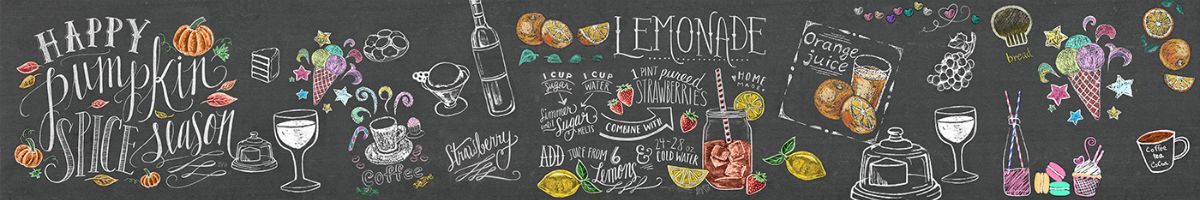 HAPPY
pumpkin
SPICE season
Coffee
Strawberry
LEMONADE
1 CUP
Sugar
1 CUP
WATER
Simmer
until Sugar
MELTS
1 PINT pureed
STRAWBERRIES
COMBINE WITH
HOME
MADE
ADD JUICE FROM 6
Lemons
& 24-28 oz
COLD WATER
Orange
Juice
bread
Coffee
tea
Cocoa